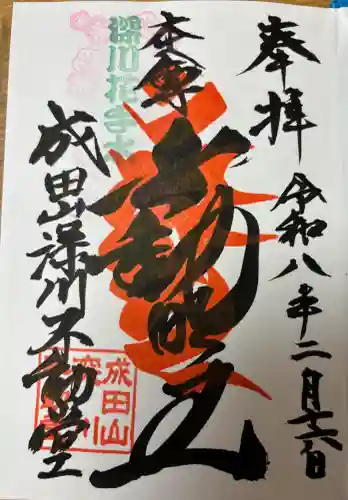 奉拝
令和八年二月十六日
本尊
不動明王
深川花手水
成田山深川不動堂
成田山